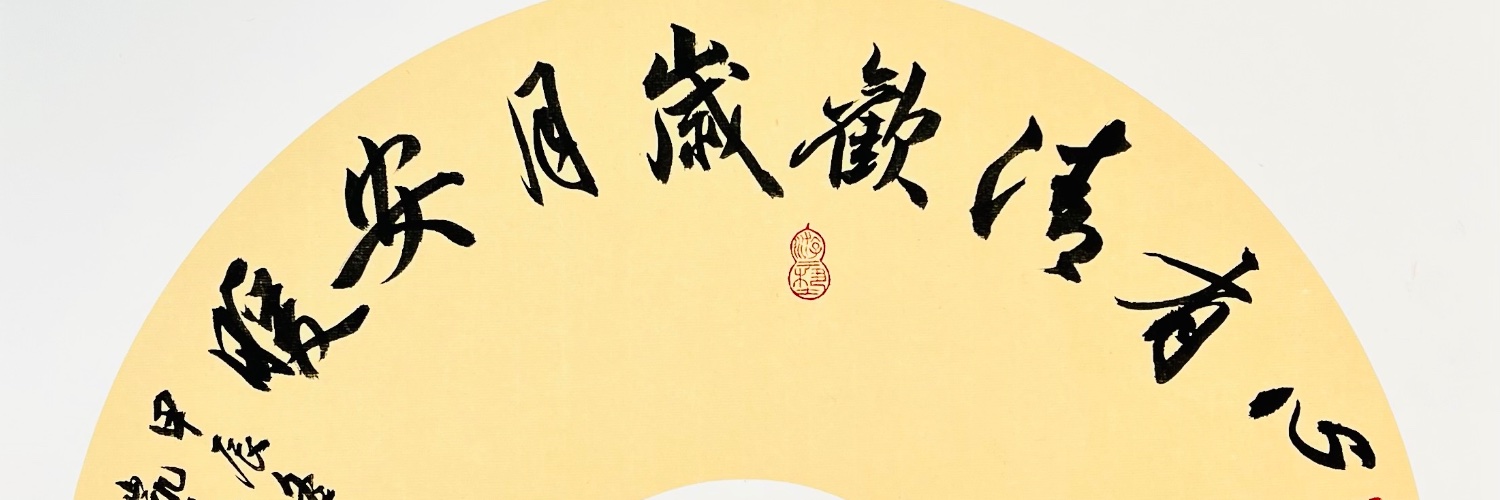 心有清歡歲月安暖
甲辰